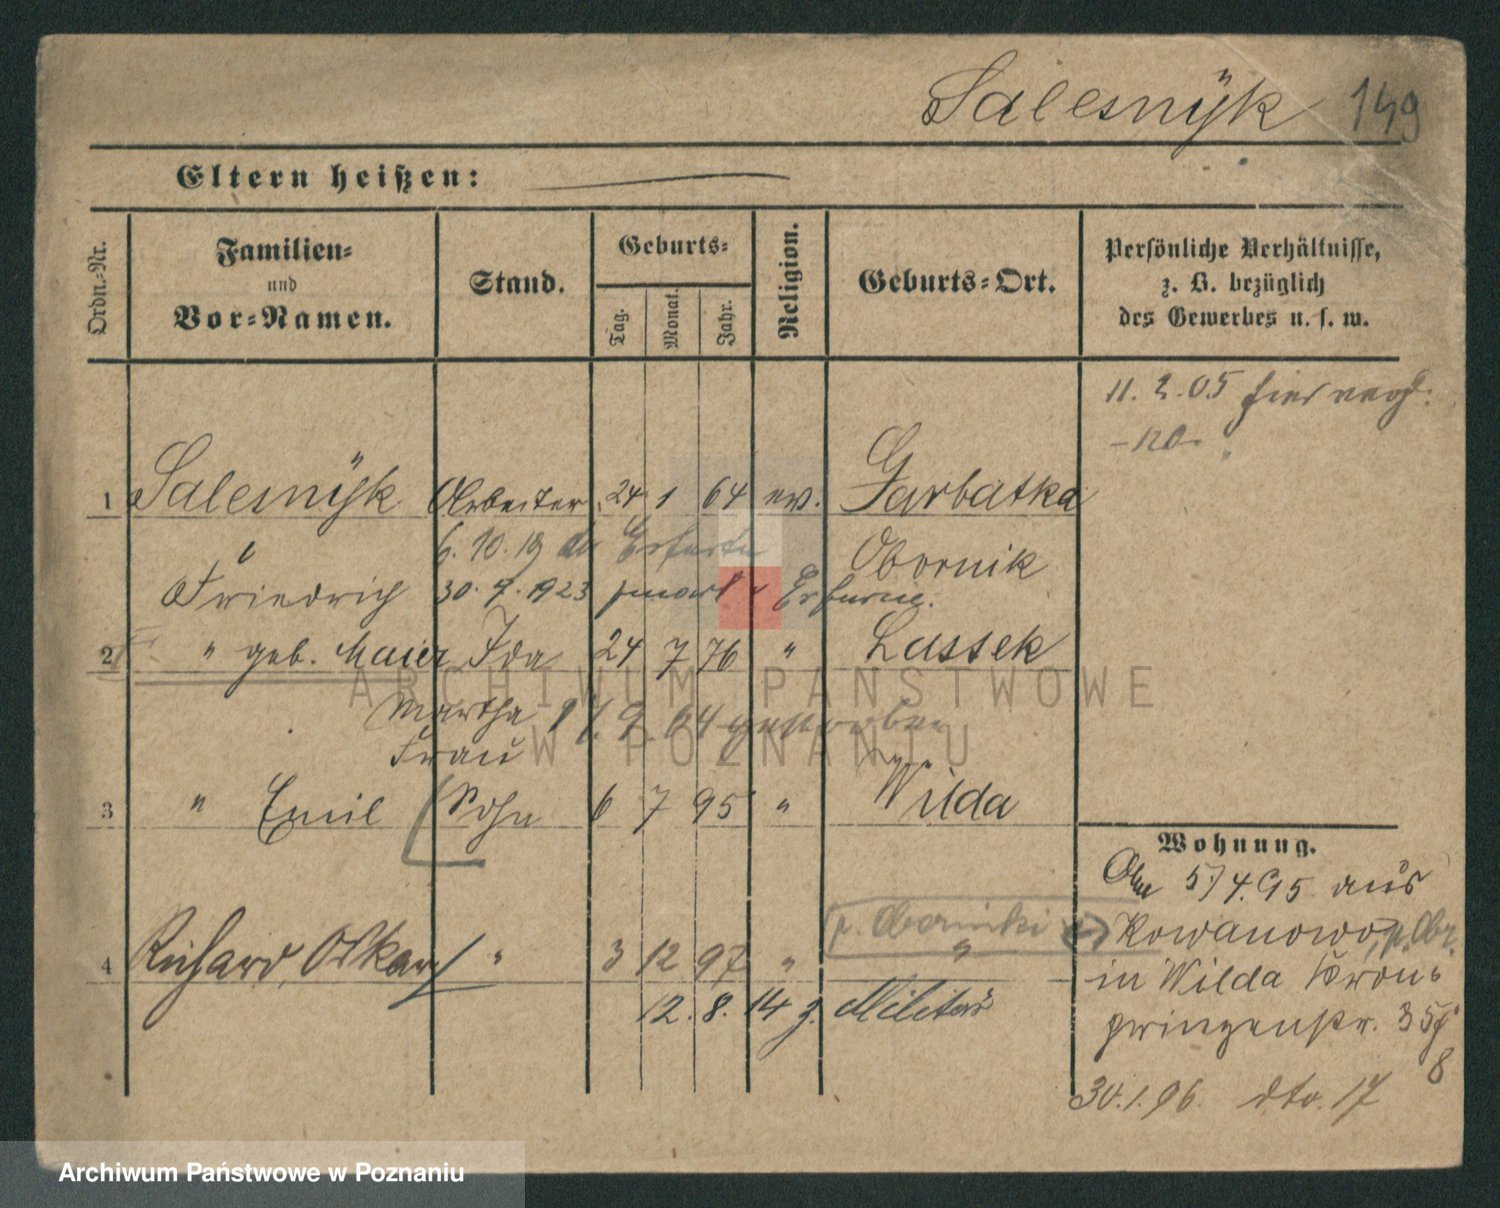 Salesnÿk 149
Eltern heißen:
Ordn.-Nr.
Familien-
und
Vor-Namen.
Stand.
Geburts-
Tag.
Monat.
Jahr.
Religion.
Geburts-Ort.
Persönliche Verhältnisse,
z. B. bezüglich
des Gewerbes u. s. w.
11. 2. 05
1 Salesnÿk Arbeiter 24 1 64 ev. Garbatka
6. 10. 19 Erfurt
Obornik
Friedrich 30. 7. 1923
2 " geb. Maier Ida 24 7 76 " Lassek
Martha 9. 04 gestorben
Frau
3 " Emil Sohn 6 7 95 " Wilda
Wohnung.
5/4. 95 aus
p. Obornik Kowanowo, p. Obr.
4 Richard, Oskar " 3 12 97 " "
in Wilda Kron-
12. 8. 14 z. Militär
prinzenstr. 35
8
30. 1. 96. dto. 17
ARCHIWUM PAŃSTWOWE
W POZNANIU
Archiwum Państwowe w Poznaniu